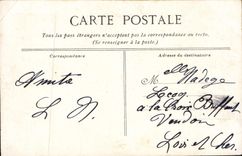 CARTE POSTALE
Tous les pays étrangers n'acceptent pas la correspondance au recto.
(Se renseigner à la poste.)
Correspondance
Adresse du destinataire
Amitié
L N.
Melle Nadège
Lecoq
à la Croix Briffaut
Vendôme
Loir et Cher